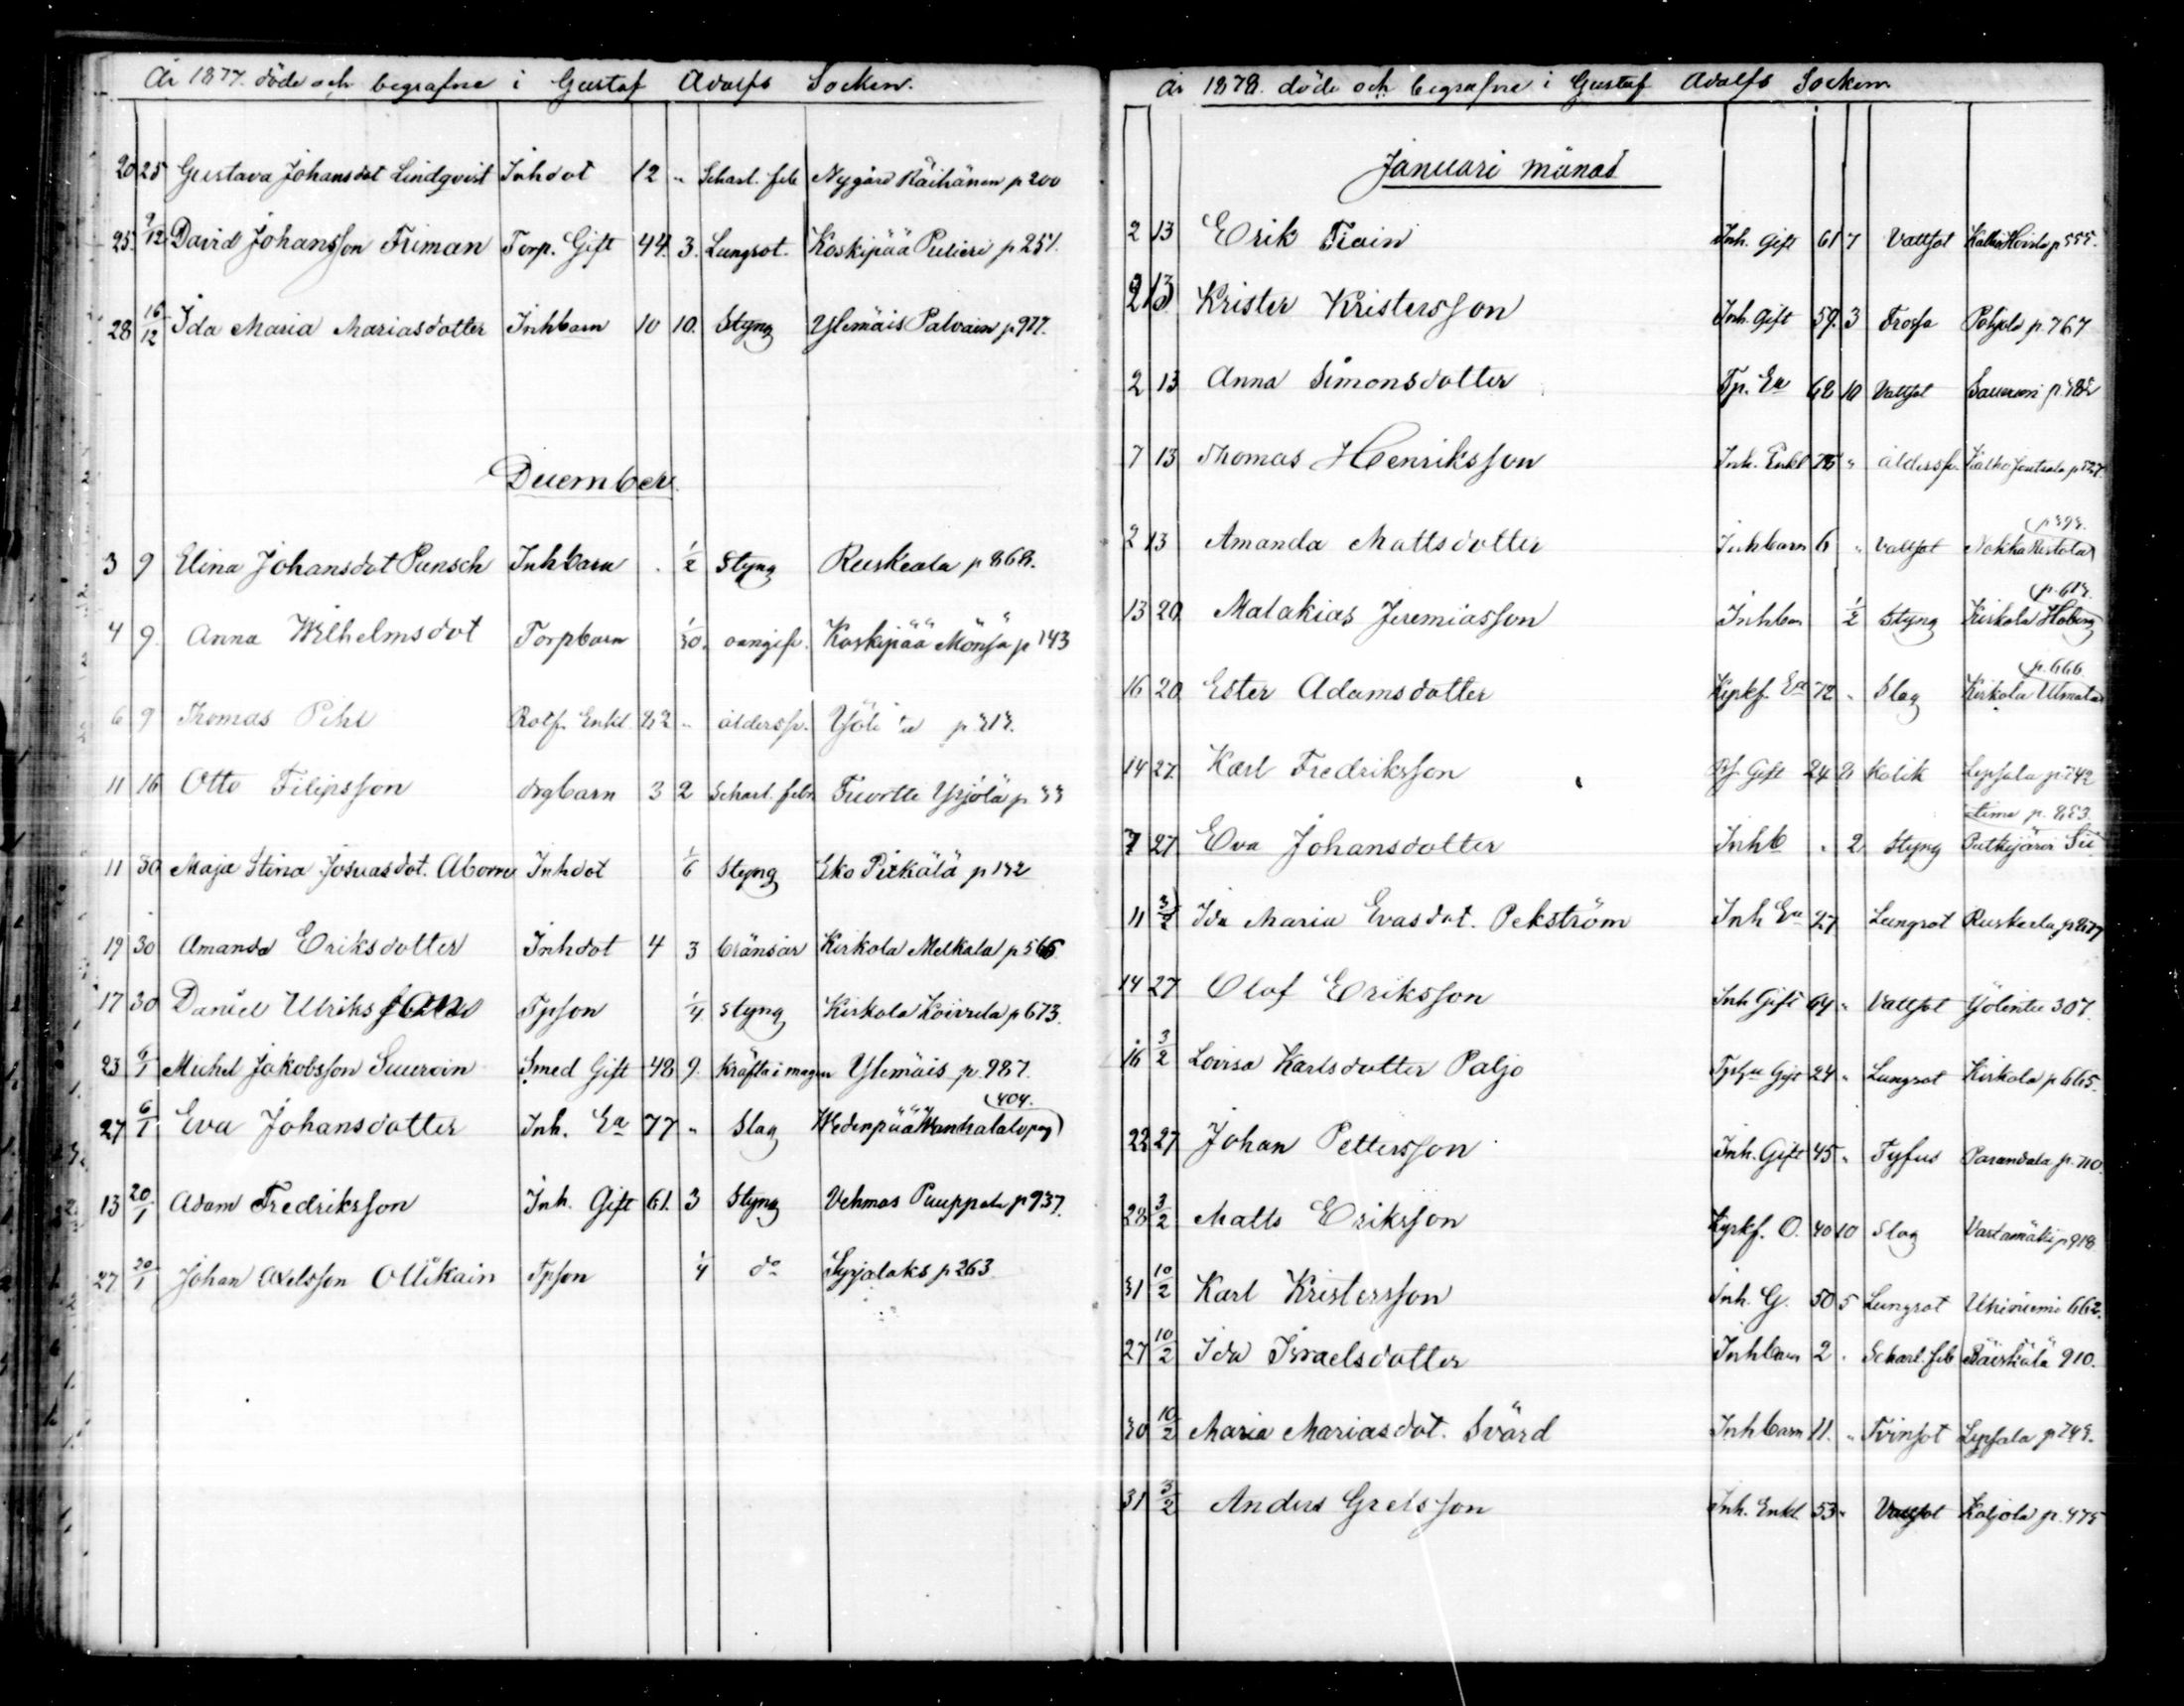 År 1877. döde och begrafne i Gustaf Adolfs Socken.
20 25 Gustava Johansdot Lindqvist Inhdot 12 " Scharl. feb Nygård Räihänen p 200
25. 9/12 David Johansson Friman Torp. Gift 44. 3. Lungsot. Koskipää Pulieri p 257.
28 16/12 Ida Maria Mariasdotter Inhbarn 10 10. Styng Ylemäis Palvain p 977.
December.
3 9 Elina Johansdot Punsch Inhbarn . 1/2 Styng Ruskeala p 868.
4 9. Anna Wilhelmsdot Torpbarn 1/30. oangifv. Koskipää Mönsä p 143
6 9 Thomas Pihl Rotf. Enkl. 82 " ålderssv. p 313.
11 16 Otto Filipsson drgbarn 3 2 Scharl. febr Yrjölä p 33
11 30 Maja Stina Josuasdot. Inhdot 1/6 Styng Eko Pirkälä p 132
19 30 Amanda Eriksdotter Inhdot 4 3 bränsår Kirkola Melkala p 566
17 30 Daniel Ulriksson Tpson 1/4 Styng Kirkola Koirrela p 673.
23 6/1 Michel Jakobsson Suuroin Smed Gift 48 9. Kräfta i magen Ylemäis p. 987.
27 6/1 Eva Johansdotter Inh. Ea 77 " Slag Wedenpää Wanhatalo pag 404.
13 20/1 Adam Fredriksson Inh. Gift 61. 3 Styng Vehmas Puuppola p 937.
27 20/1 Johan Axelsson Ollikain Tpson 1/4 do Syrjalaks p 263.
År 1878. döde och begrafne i Gustaf Adolfs Socken
Januari månad
2 13 Erik Tiain Inh. Gift 61 7 Vattsot p 555.
2 13 Krister Kristersson Inh. Gift 59. 3 Frossa Pohjola p. 767
2 13 Anna Simonsdotter Tp. Ea 68 10 Vattsot
7 13 Thomas Henriksson Inh. Enkl 76 " ålderssv. Kalho
2 13 Amanda Mattsdotter Inhbarn 6 " Vattsot Nokka
13 20 Malakias Jeremiasson Inhbarn 1/2 Styng Kirkola Hoberg
16 20 Ester Adamsdotter Kyrkf. Ea 72 " Slag Kirkola Ulmala p. 666
14 27 Karl Fredriksson Gift 24 8 Kolik Lepsala p 742
7 27 Eva Johansdotter Inhb . 2 Styng Putkijärvi Sii tima p. 853.
11 3/2 Ida Maria Evasdot. Pekström Inh Ea 27 Lungsot Ruskeala p 877
14 27 Olof Eriksson Inh Gift 64 " Vattsot Yölintu 307.
16 3/2 Lovisa Karlsdotter Paljo Gift 24 " Lungsot Kirkola p 665.
22 27 Johan Pettersson Inh. Gift 45 " Tyfus Parandala p. 710.
28 3/2 Matts Eriksson Kyrkf. O. 40 10 Slag Vastamäki p 918.
31 10/2 Karl Kristersson Inh. G. 50 5 Lungsot Uhiniemi 662.
27 10/2 Ida Israelsdotter Inhbarn 2 . Scharl. feb Päiskälä 910.
30 10/2 Maria Mariasdot. Svärd Inhbarn 11. " Tvinsot Lepsala p 743.
31 3/2 Anders Grelsson Inh. Enkl. 53 " Vattsot Kaljola p. 475